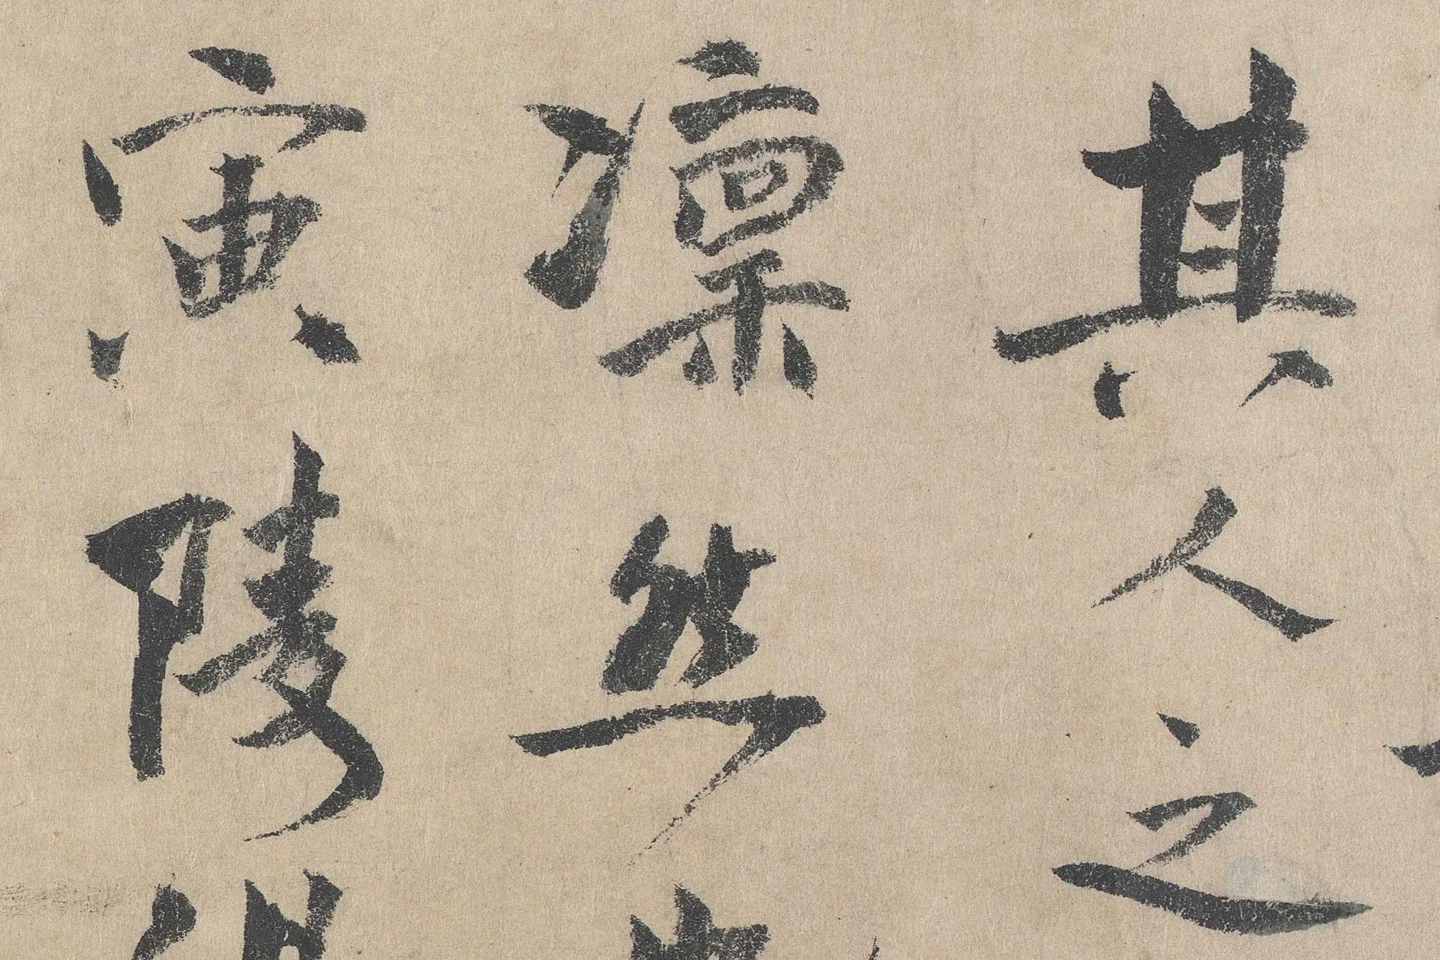 其人之
凛然
寅陵